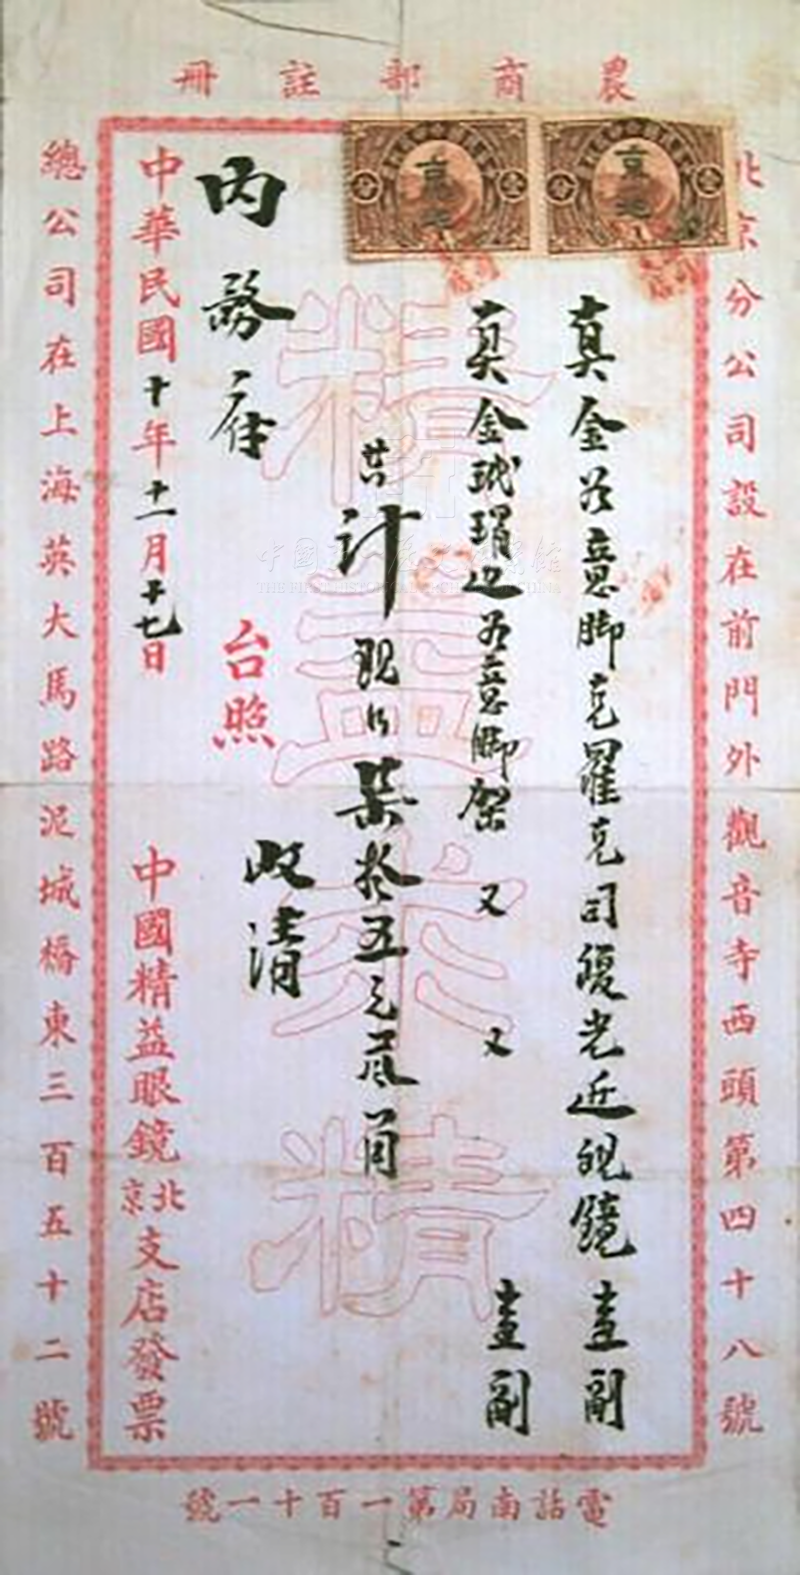 農商部註冊
北京分公司設在前門外觀音寺西頭第四十八號
真金如意脚克羅克司複光近視鏡壹副
真金玳瑁边如意脚架又又壹副
共計現洋柒拾五元貳角
收清
內務府
台照
中華民國十年十一月十七日
中國精益眼鏡北京支店發票
總公司在上海英大馬路泥城橋東三百五十二號
電話南局第一百十一號
精益求精